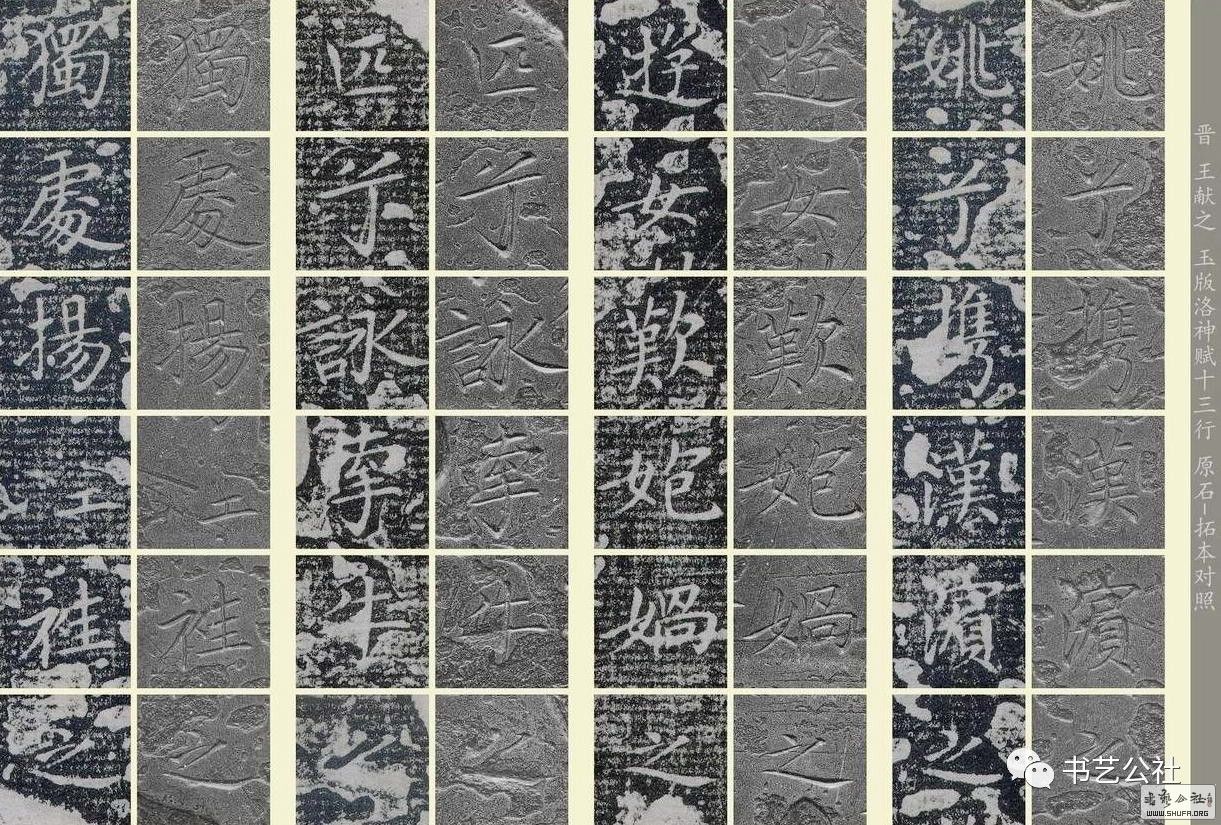 晋 王献之 玉版洛神赋十三行 原石-拓本对照
姚兮携漢濱之
姚兮携漢濱之
遊女歎匏媧之
遊女歎匏媧之
匹兮詠牽牛之
匹兮詠牽牛之
獨處揚袿之
獨處揚袿之
书艺公社
书艺公社
WWW.SHUFA.ORG